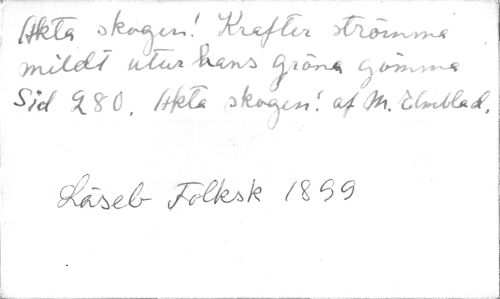 Akta skogen! Krafter strömma
mildt utur hans gröna gömma
Sid 280. Akta skogen! af M. Elmblad.
Läseb Folksk 1899